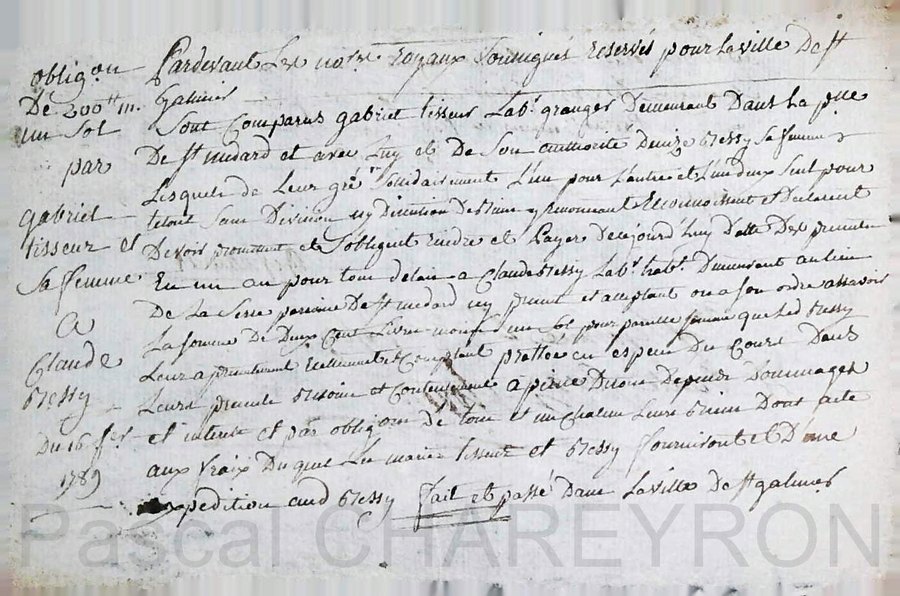 obligon
De 200tt m.
un Sol
par
gabriel
tisseur et
Sa femme
A
Claude
Bressy
Du 16 fer
1789
Pardevant Les notres royaux Soussignés reservés pour la ville De St
Galmier
Sont Comparus gabriel tisseur Labr granger Demeurant Dans La psse
De St medard et avec Luy et De Son authorité Denize Bressy Sa femme
Lesquels de Leur gré Solidairement L'un pour L'autre et L'un deux Seul pour
letout Sans Division ny Renonçant Reconnoissent et Declarent
Devoir promettent et S'obligent rendre et Payer Decejourd'huy Datte Des presentes
En un an pour tout delai a Claude Bressy Labr habt Demeurant au lieu
De La parroisse De St medard icy present et acceptant ou a Son ordre assavoir
La Somme De Deux Cent Livres moins un Sol pour pareille Somme que Led Bressy
Leur a presentement reellement et Comptant prettée en especes Du Cours Dans
Leurs presents besoins et Contentement A peine De tous Depends Dommages
et interest et par obligons de tous et un chacun Leurs biens Dont acte
aux fraix Du quel Les mariés tisseur et Bressy fourniront D'une
Expedition aud Bressy fait et passé Dans La ville De St galmier
Pascal CHAREYRON